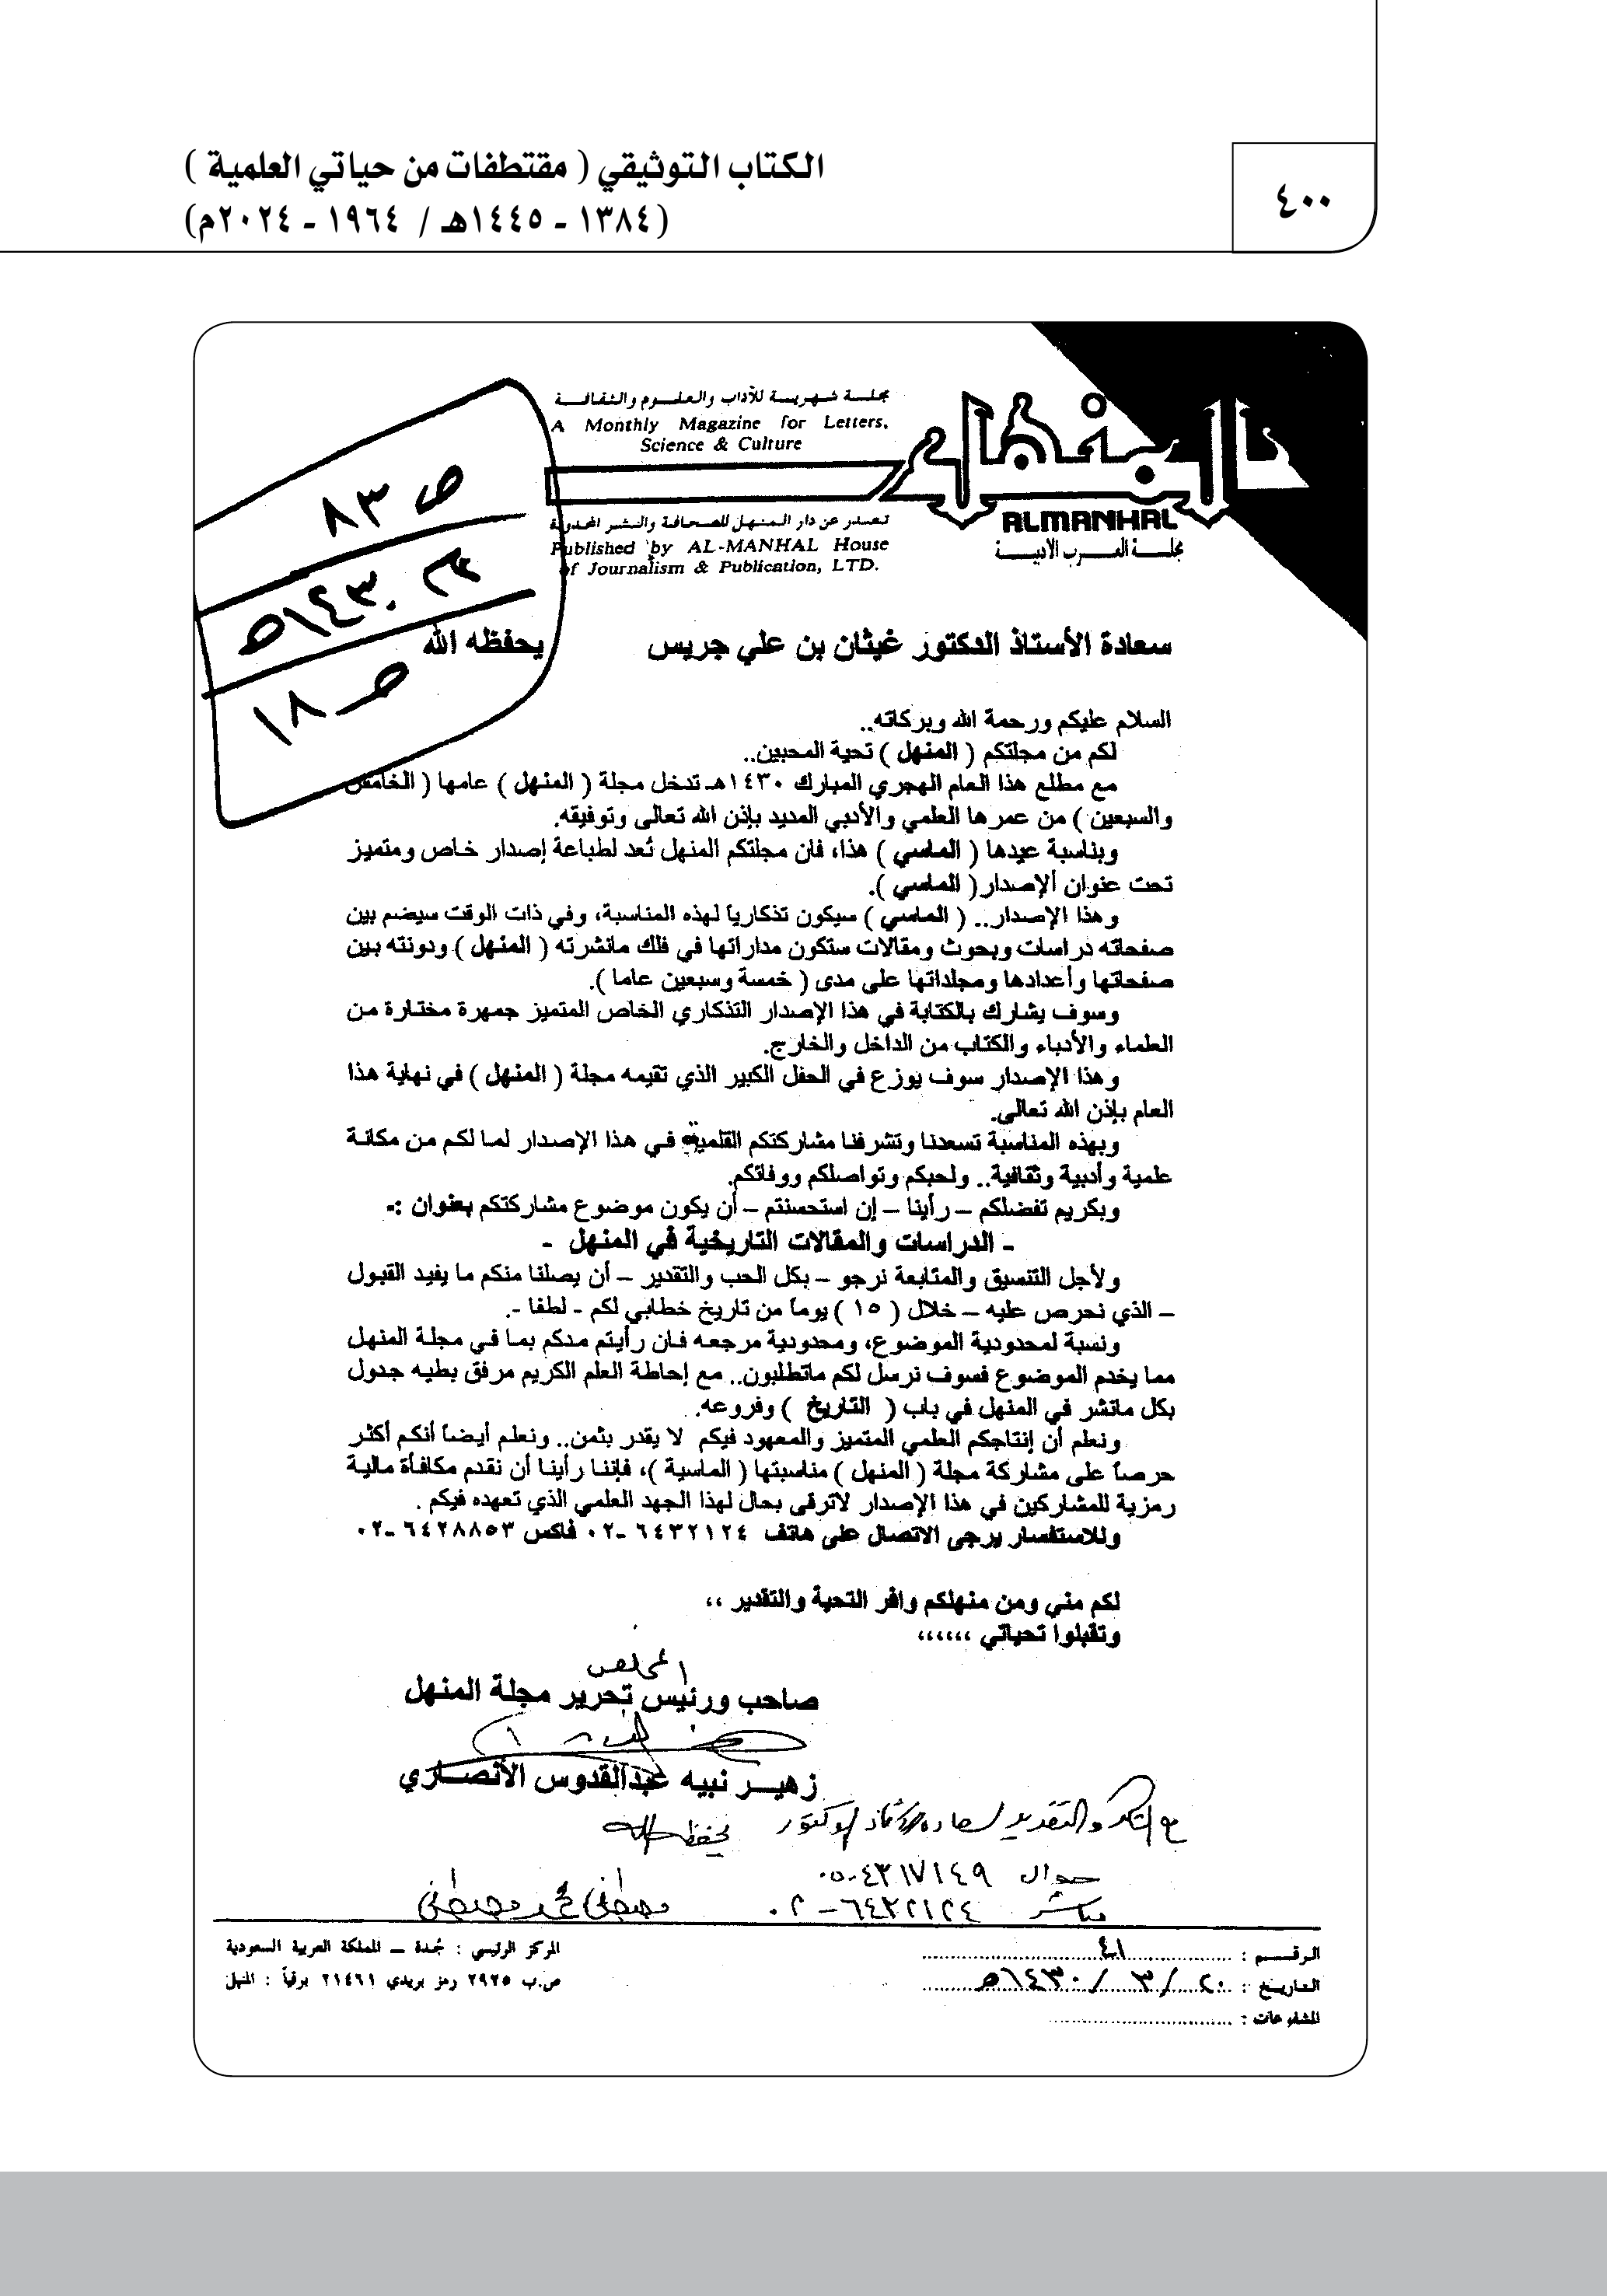 الكتاب التوثيقي ( مقتطفات من حياتي العلمية )
(١٣٨٤ - ١٤٤٥هـ / ١٩٦٤ - ٢٠٢٤م)
٤٠٠
المنهل
ALMANHAL
مجلة العرب الأدبية
مجلة شهرية للآداب والعلوم والثقافة
A Monthly Magazine for Letters,
Science & Culture
تصدر عن دار المنهل للصحافة والنشر المحدودة
Published by AL-MANHAL House
of Journalism & Publication, LTD.
ص ٨٣
١٤٣٠هـ
صـ ١٨
سعادة الأستاذ الدكتور غيثان بن علي جريس يحفظه الله
السلام عليكم ورحمة الله وبركاته..
لكم من مجلتكم ( المنهل ) تحية المحبين..
مع مطلع هذا العام الهجري المبارك ١٤٣٠هـ تدخل مجلة ( المنهل ) عامها ( الخامس
والسبعين ) من عمرها العلمي والأدبي المديد بإذن الله تعالى وتوفيقه.
وبناسبة عيدها ( الماسي ) هذا، فان مجلتكم المنهل تُعد لطباعة إصدار خاص ومتميز
تحت عنوان ألإصدار( الماسي ).
وهذا الإصدار.. ( الماسي ) سيكون تذكارياً لهذه المناسبة، وفي ذات الوقت سيضم بين
صفحاته دراسات وبحوث ومقالات ستكون مداراتها في فلك مانشرته ( المنهل ) ودونته بين
صفحاتها وأعدادها ومجلداتها على مدى ( خمسة وسبعين عاما ).
وسوف يشارك بالكتابة في هذا الإصدار التذكاري الخاص المتميز جمهرة مختارة من
العلماء والأدباء والكتاب من الداخل والخارج.
وهذا الإصدار سوف يوزع في الحفل الكبير الذي تقيمه مجلة ( المنهل ) في نهاية هذا
العام بإذن الله تعالى.
وبهذه المناسبة تسعدنا وتشرفنا مشاركتكم القلمية في هذا الإصدار لما لكم من مكانة
علمية وأدبية وثقافية.. ولحبكم وتواصلكم ووفائكم.
وبكريم تفضلكم – رأينا – إن استحسنتم – أن يكون موضوع مشاركتكم بعنوان :-
- الدراسات والمقالات التاريخية في المنهل -
ولأجل التنسيق والمتابعة نرجو – بكل الحب والتقدير – أن يصلنا منكم ما يفيد القبول
– الذي نحرص عليه – خلال ( ١٥ ) يوماً من تاريخ خطابي لكم - لطفا -.
ونسبة لمحدودية الموضوع، ومحدودية مرجعه فان رأيتم مدكم بما في مجلة المنهل
مما يخدم الموضوع فسوف نرسل لكم ماتطلبون.. مع إحاطة العلم الكريم مرفق بطيه جدول
بكل مانشر في المنهل في باب ( التاريخ ) وفروعه.
ونعلم أن إنتاجكم العلمي المتميز والمعهود فيكم لا يقدر بثمن.. ونعلم أيضاً أنكم أكثر
حرصاً على مشاركة مجلة ( المنهل ) مناسبتها ( الماسية )، فإننا رأينا أن نقدم مكافأة مالية
رمزية للمشاركين في هذا الإصدار لاترقى بحال لهذا الجهد العلمي الذي تعهده فيكم .
وللاستفسار يرجى الاتصال على هاتف ٦٤٣٢١٢٤ -٠٢ فاكس ٦٤٢٨٨٥٣ -٠٢
لكم مني ومن منهلكم وافر التحية والتقدير ،،
وتقبلوا تحياتي ،،،،،،
المخلص
صاحب ورئيس تحرير مجلة المنهل
زهيـر نبيه عبدالقدوس الأنصـاري
مع الشكر والتقدير لسعادة الأستاذ الدكتور يحفظه الله
جوال ٠٥٠٤٣١٧١٤٩
مباشر ٦٤٣٢١٢٤ – ٠٢
مصطفى محمد مصطفى
الرقـم : ٤١
التاريخ : ٢٠ / ٣ / ١٤٣٠هـ
المشفوعات :
المركز الرئيسي : جُدة – المملكة العربية السعودية
ص.ب ٢٩٢٥ رمز بريدي ٢١٤٦١ برقياً : المنهل